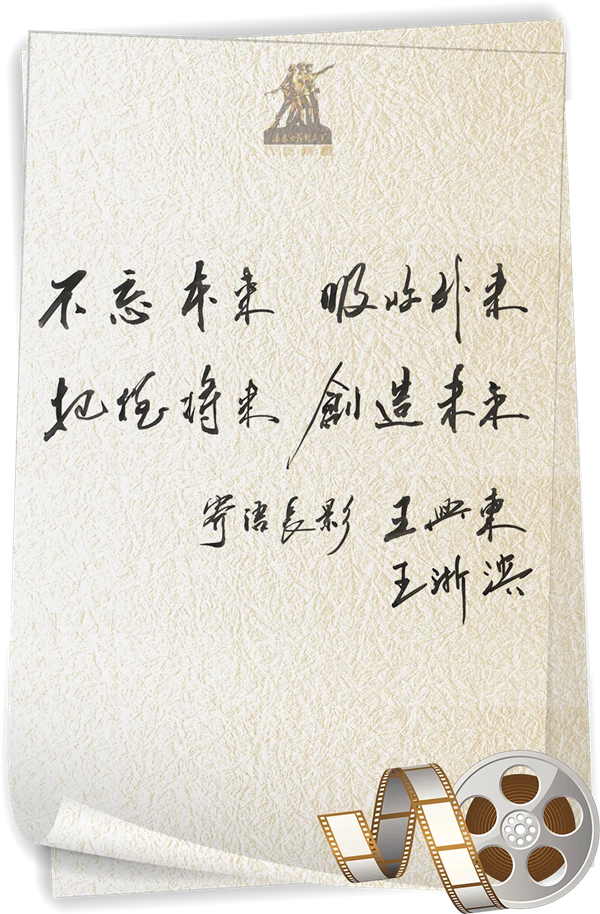 不忘本来 吸收外来
把握将来 創造未来
寄语長影 王興東
王浙滨